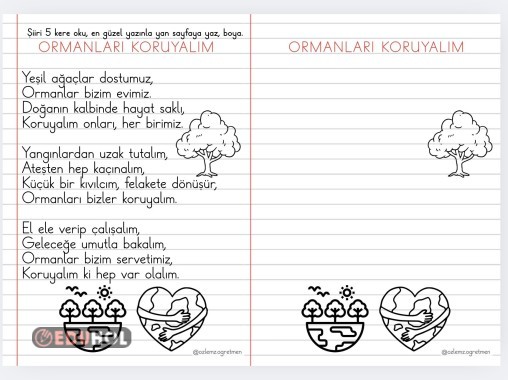 Şiiri 5 kere oku, en güzel yazınla yan sayfaya yaz, boya.
ORMANLARI KORUYALIM
Yeşil ağaçlar dostumuz,
Ormanlar bizim evimiz.
Doğanın kalbinde hayat saklı,
Koruyalım onları, her birimiz.
Yangınlardan uzak tutalım,
Ateşten hep kaçınalım,
Küçük bir kıvılcım, felakete dönüşür,
Ormanları bizler koruyalım.
El ele verip çalışalım,
Geleceğe umutla bakalım,
Ormanlar bizim servetimiz,
Koruyalım ki hep var olalım.
EDUHOL
@ozlemz.ogretmen
ORMANLARI KORUYALIM
@ozlemz.ogretmen